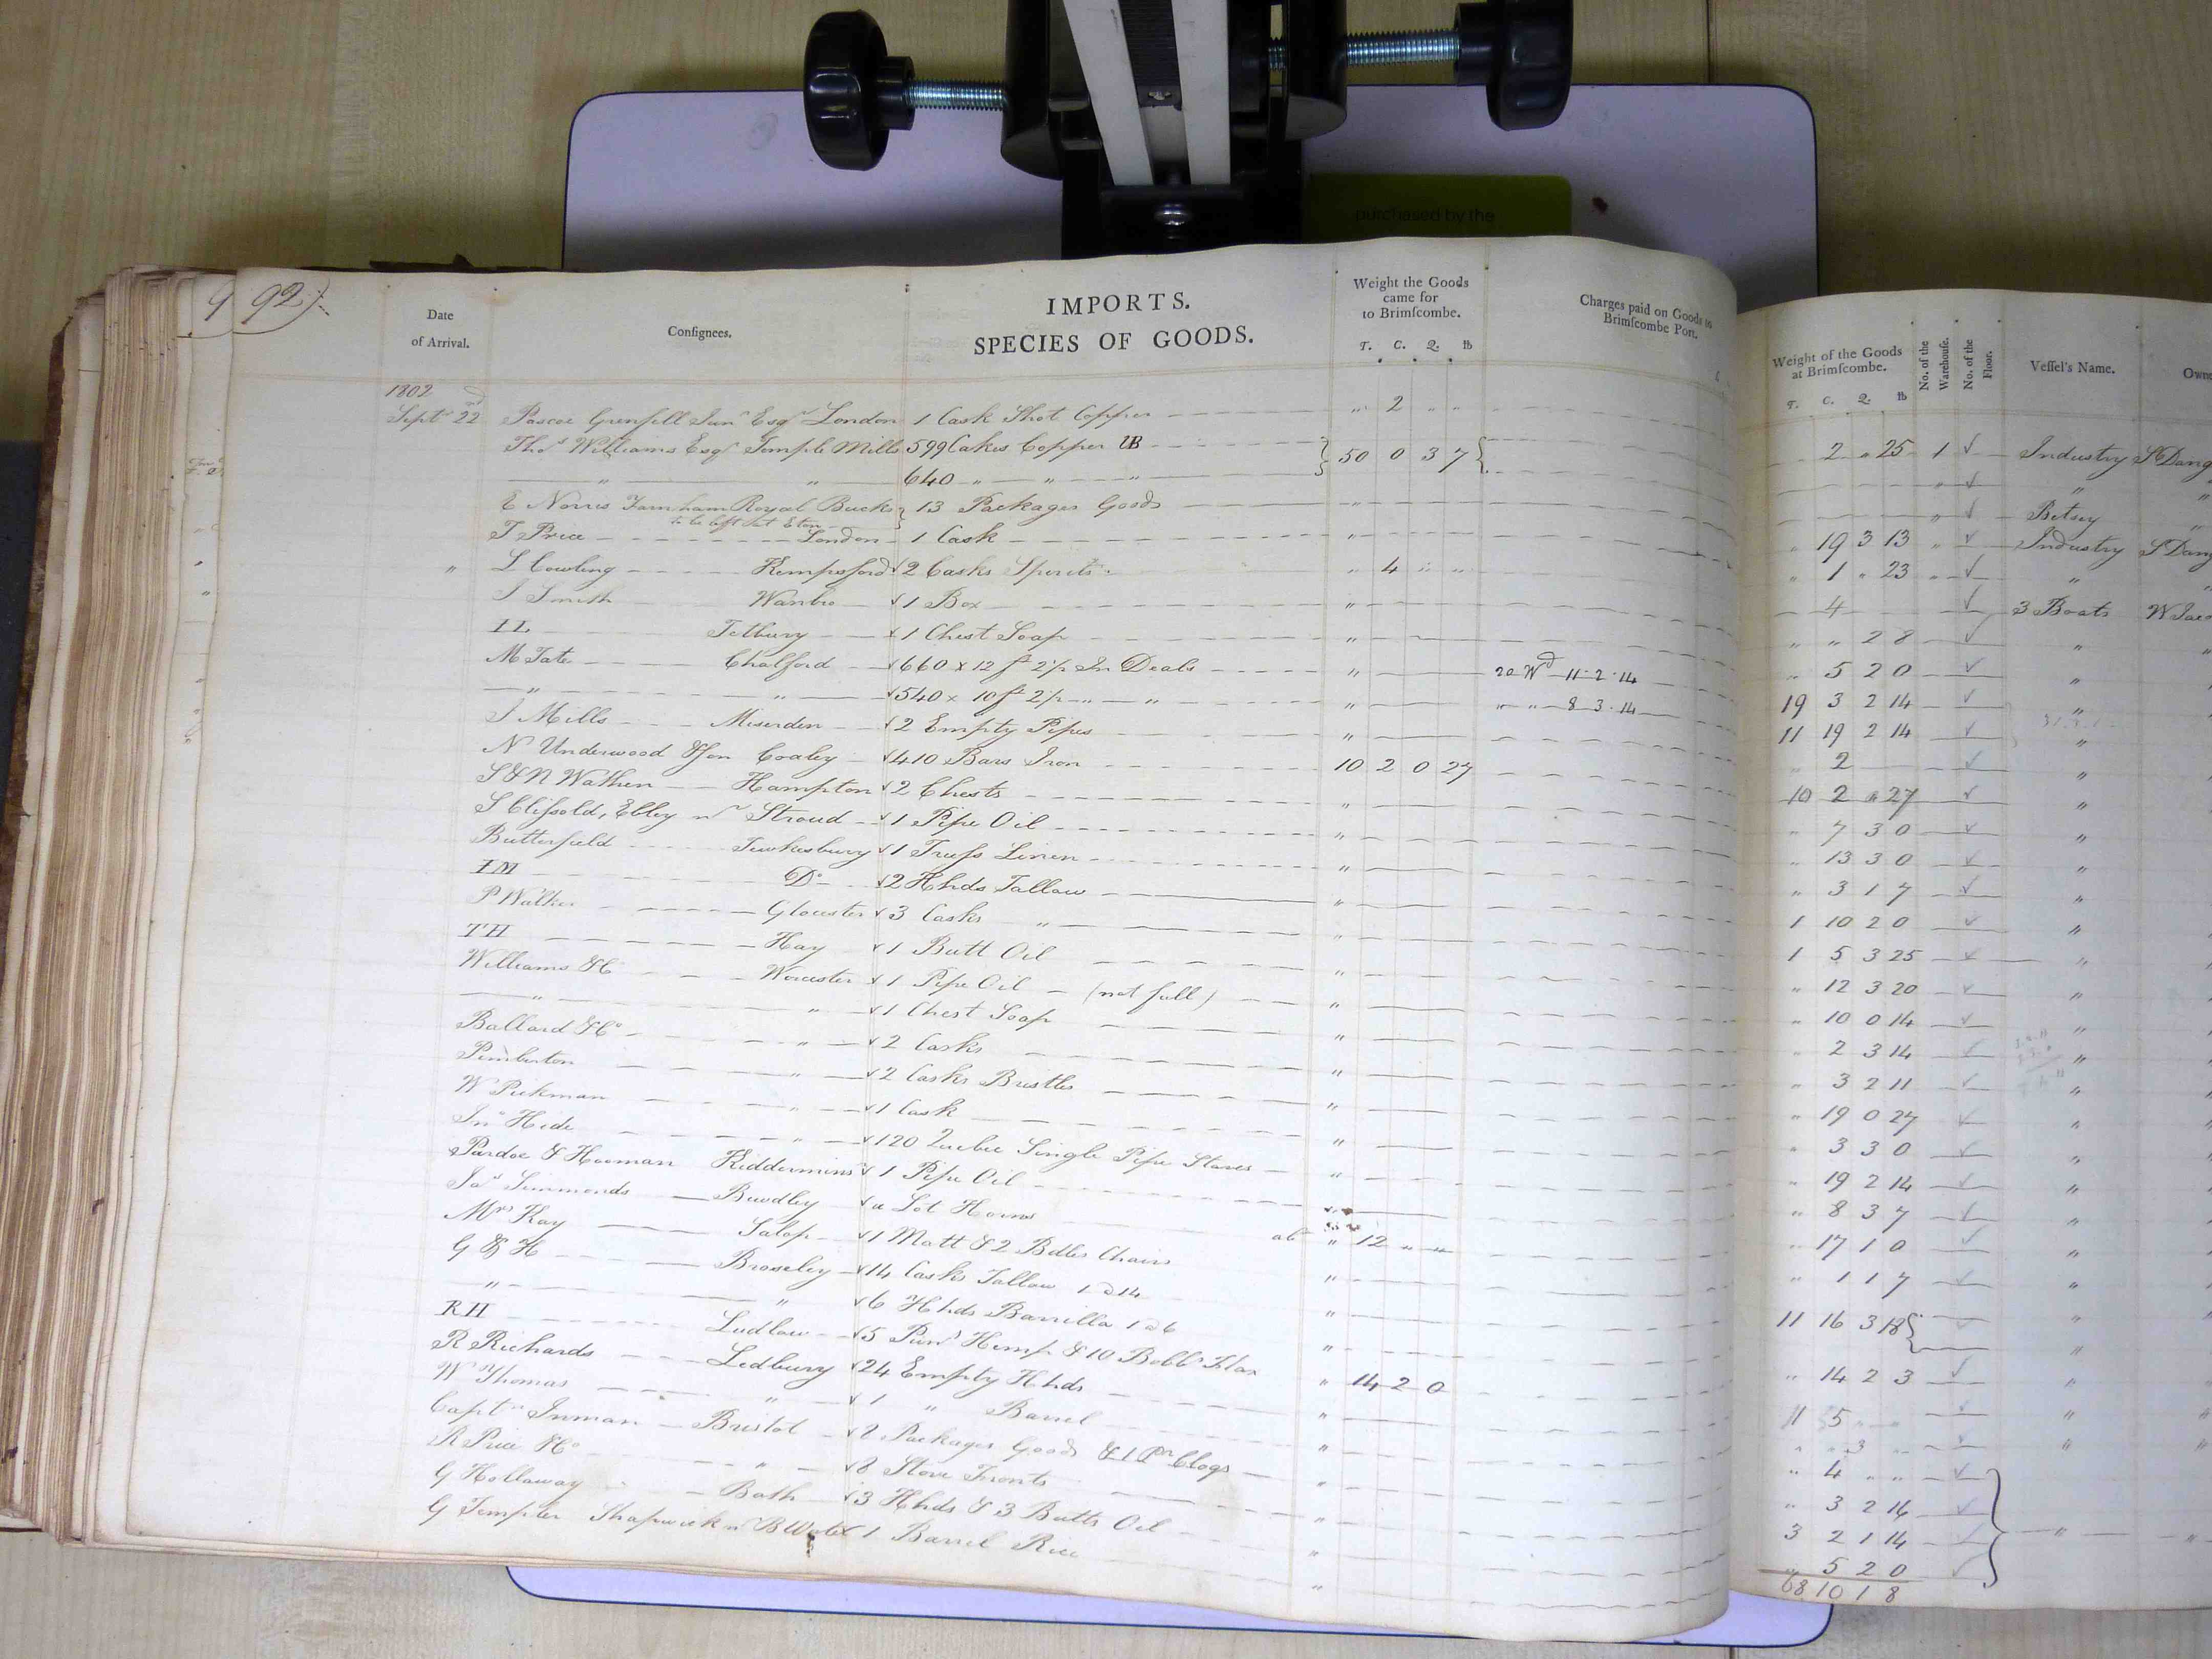 purchased by the
92)
Date of Arrival.
Consignees.
IMPORTS.
SPECIES OF GOODS.
Weight the Goods came for to Brimscombe.
T. C. Q. lb
Charges paid on Goods to Brimscombe Port.
Weight of the Goods at Brimscombe.
T. C. Q. lb
No. of the Warehouse.
No. of the Floor.
Vessel's Name.
1802
Sept 22 Pascoe Grenfell Junr Esqr London 1 Cask Shot Copper " 2 " " 2 " 25 1 ✓ Industry
Thos Williams Esqr Temple Mills 599 Cakes Copper 50 0 3 7 " ✓ "
" " 640 " " " " ✓ Betsey
E Norris Farnham Royal Bucks 13 Packages Goods " 19 3 13 " ✓ Industry
to be left at Eton
T Price London 1 Cask " 1 " 23 " ✓ "
" L Cowling Kempsford ✓ 2 Casks Spirits " 4 " " 4 ✓ 3 Boats
J Smith Wanbro ✓ 1 Box " " " 2 8 ✓ "
IL Tetbury ✓ 1 Chest Soap " " 5 2 0 ✓ "
M Tate Chalford ✓ 660 x 12 ft 2½ In Deals " 20 Wd 11 2 14 19 3 2 14 ✓ "
" " ✓ 540 x 10 ft 2½ " " " " " 8 3 14 11 19 2 14 ✓ "
J Mills Miserden ✓ 2 Empty Pipes " " 2 ✓ "
N Underwood & Son Coaley ✓ 410 Bars Iron 10 2 0 27 10 2 " 27 ✓ "
S & N Wathen Hampton ✓ 2 Chests " " 7 3 0 ✓ "
S Clissold, Ebley nr Stroud ✓ 1 Pipe Oil " " 13 3 0 ✓ "
Butterfield Tewkesbury ✓ 1 Truss Linen " " 3 1 7 ✓ "
IM Do ✓ 2 Hhds Tallow " 1 10 2 0 ✓ "
P Walker Glouster ✓ 3 Casks " " 1 5 3 25 ✓ "
TH Hay ✓ 1 Butt Oil " 12 3 20 ✓ "
Williams & Co Worcester ✓ 1 Pipe Oil (not full) " " 10 0 14 ✓ "
" " ✓ 1 Chest Soap " " 2 3 14 ✓ "
Ballard & Co " ✓ 2 Casks " " 3 2 11 ✓ "
Pemberton " ✓ 2 Casks Bristles " " 19 0 27 ✓ "
W Pickman " ✓ 1 Cask " " 3 3 0 ✓ "
Jno Hide " ✓ 120 Quebec Single Pipe Staves " " 19 2 14 ✓ "
Pardoe & Hooman Kiddermins ✓ 1 Pipe Oil " " 8 3 7 ✓ "
Jas Simmonds Bewdley ✓ a Lot Horns ab " 12 " " " 17 1 0 ✓ "
Mrs Kay Salop ✓ 1 Matt & 2 Bdles Chairs " " 1 1 7 ✓ "
G & H Broseley ✓ 14 Casks Tallow 1 @ 14 " 11 16 3 18 ✓ "
" " ✓ 6 Hhds Barrilla 1 @ 6 " "
RH Ludlow ✓ 5 Puns Hemp & 10 Bobbs Flax " 14 2 0 " 14 2 3 ✓ "
R Richards Ledbury ✓ 24 Empty Hhds " 11 5 " " ✓ "
W Thomas " ✓ 1 " Barrel " " " 3 " ✓ "
Captn Inman Bristol ✓ 2 Packages Goods & 1 Pr Clogs " " 4 " " ✓
R Price & Co " ✓ 8 Stove Fronts " " 3 2 14 ✓
G Hollaway Bath ✓ 3 Hhds & 3 Butts Oil " 3 2 1 14 ✓ "
G Templer Shapwick nr BWater 1 Barrel Rice " " 5 2 0 ✓
68 10 1 8